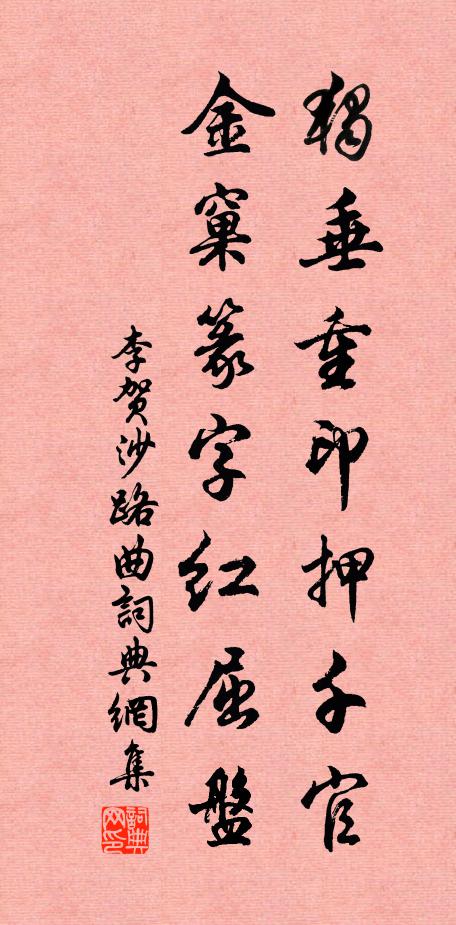 獨垂重印押千官
金窠篆字紅屈盤
李贺沙路曲詞典網集
詞典网印